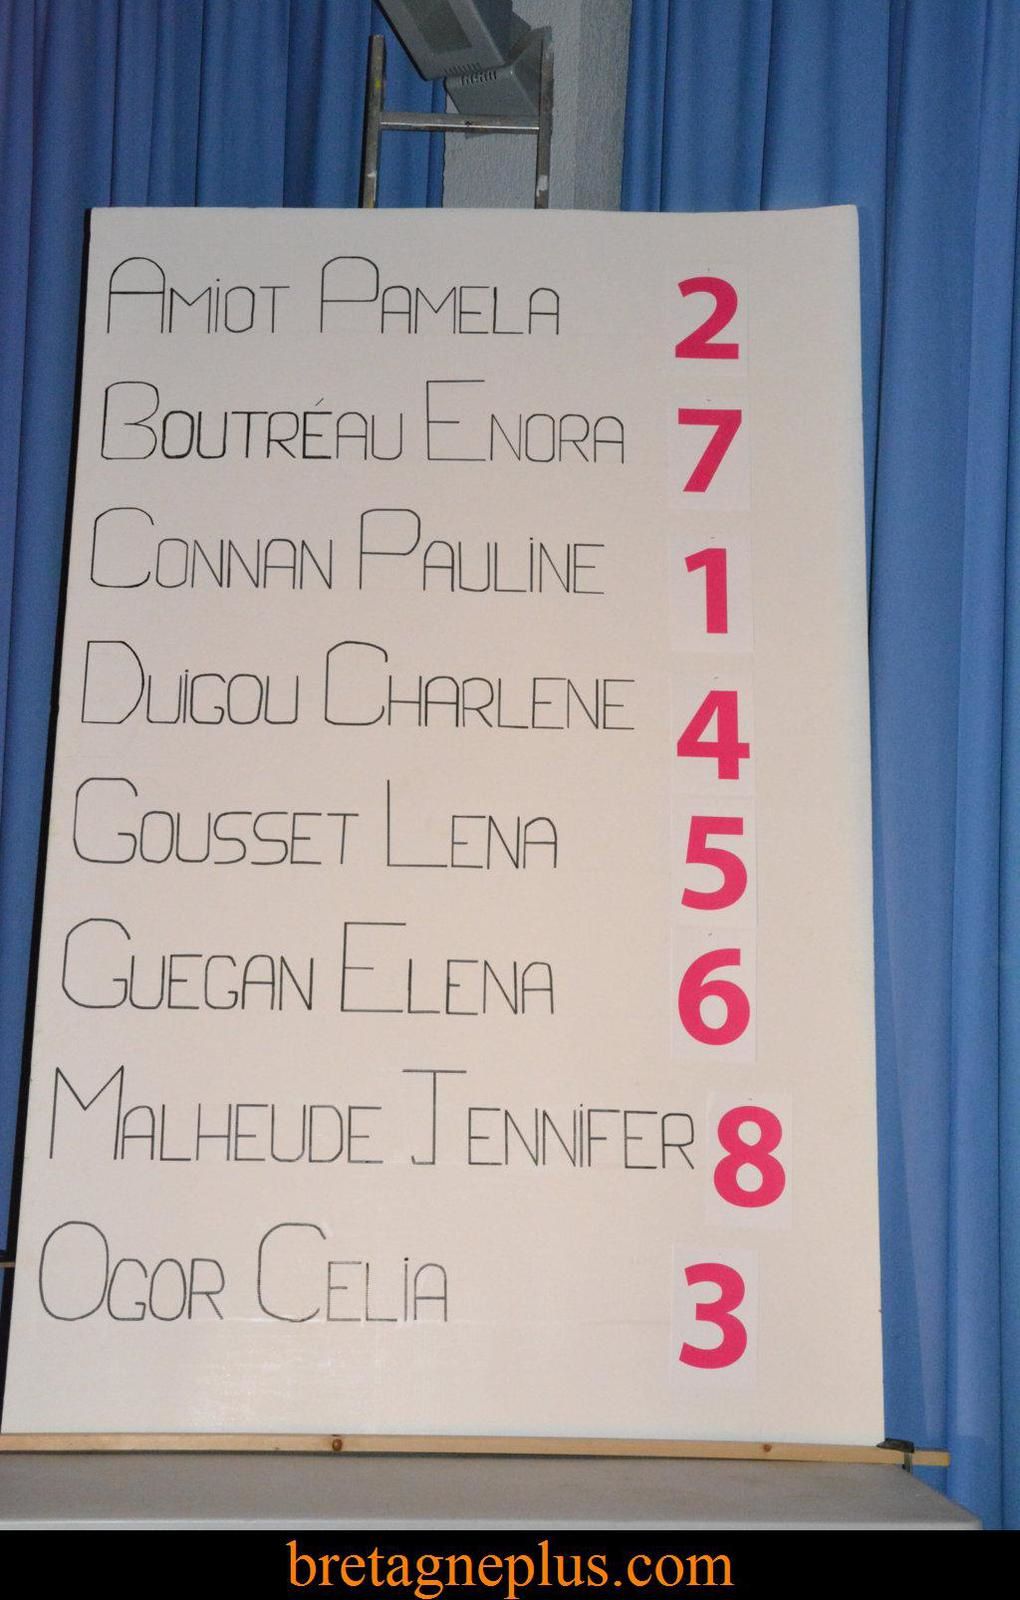 AMiOT PAMELA 2
BOUTRÉAU ENORA 7
CONNAN PAULiNE 1
DUiGOU CHARLENE 4
GOUSSET LENA 5
GUEGAN ELENA 6
MALHEUDE JENNiFER 8
OGOR CELiA 3
bretagneplus.com